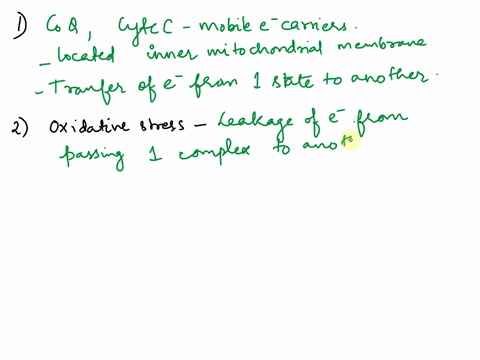 1) CoQ, Cyte C - mobile e⁻ carriers.
- Located inner mitochondrial membrane
- Tranfer of e⁻ from 1 state to another.
2) Oxidative stress - Leakage of e⁻ from
passing 1 complex to anot